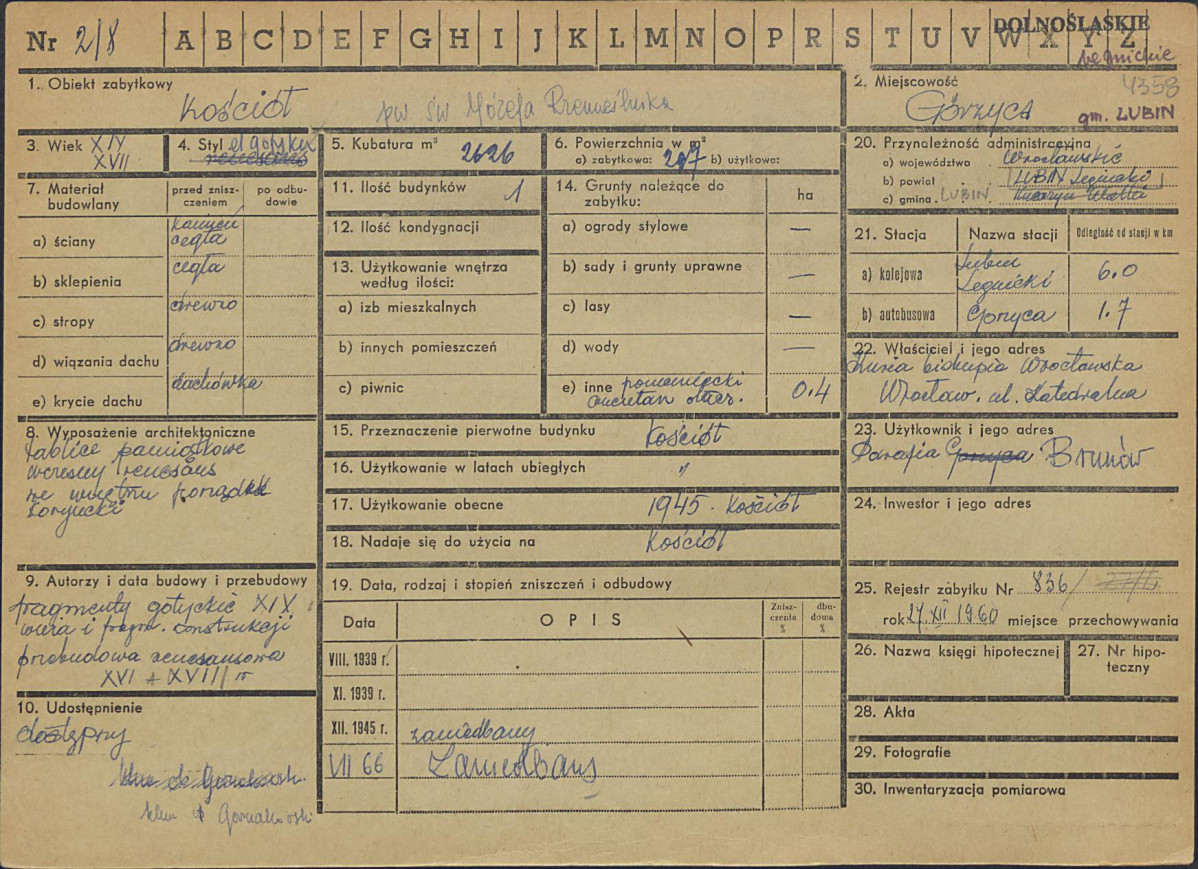 DOLNOŚLĄSKIE
Nr 2/8 A B C D E F G H I J K L M N O P R S T U V W X Y Z
legnickie
4358
1. Obiekt zabytkowy
Kościół pw św Józefa Rzemieślnika
2. Miejscowość
Górzyca
gm. LUBIN
3. Wiek XIV
XVII
4. Styl el gotyckie
renesans
5. Kubatura m³ 2626
6. Powierzchnia w m²
a) zabytkowa: 297 b) użytkowa:
20. Przynależność administracyjna
a) województwo Wrocławskie
b) powiat LUBIN Legnicki
c) gmina LUBIN
7. Materiał budowlany
przed zniszczeniem
po odbudowie
a) ściany kamień cegła
b) sklepienia cegła
c) stropy drewno
d) wiązania dachu drewno
e) krycie dachu dachówka
11. Ilość budynków 1
12. Ilość kondygnacji
13. Użytkowanie wnętrza
według ilości:
a) izb mieszkalnych
b) innych pomieszczeń
c) piwnic
14. Grunty należące do
zabytku:
ha
a) ogrody stylowe —
b) sady i grunty uprawne —
c) lasy —
d) wody —
e) inne poniemiecki
cmentarz otacz. 0.4
21. Stacja Nazwa stacji Odległość od stacji w km
a) kolejowa Lubin
Legnicki 6.0
b) autobusowa Gorzyca 1.7
22. Właściciel i jego adres
Kuria biskupia Wrocławska
Wrocław. ul. Katedralna
8. Wyposażenie architektoniczne
tablice pamiątkowe
wczesny renesans
we wnętrzu
15. Przeznaczenie pierwotne budynku Kościół
16. Użytkowanie w latach ubiegłych "
17. Użytkowanie obecne 1945. Kościół
18. Nadaje się do użycia na Kościół
23. Użytkownik i jego adres
Parafia Gorzyca Brunów
24. Inwestor i jego adres
9. Autorzy i data budowy i przebudowy
fragmenty gotyckie XIV
wieża i fragm. konstrukcji
przebudowa renesansowa
XVI + XVIII w
10. Udostępnienie
dostępny
19. Data, rodzaj i stopień zniszczeń i odbudowy
Data OPIS Zniszczenia % dbudowa %
VIII. 1939 r.
XI. 1939 r.
XII. 1945 r. zaniedbany
VII 66 Zaniedbany
25. Rejestr zabytku Nr 836/
rok 27.XII 1960 miejsce przechowywania
26. Nazwa księgi hipotecznej
27. Nr hipoteczny
28. Akta
29. Fotografie
30. Inwentaryzacja pomiarowa